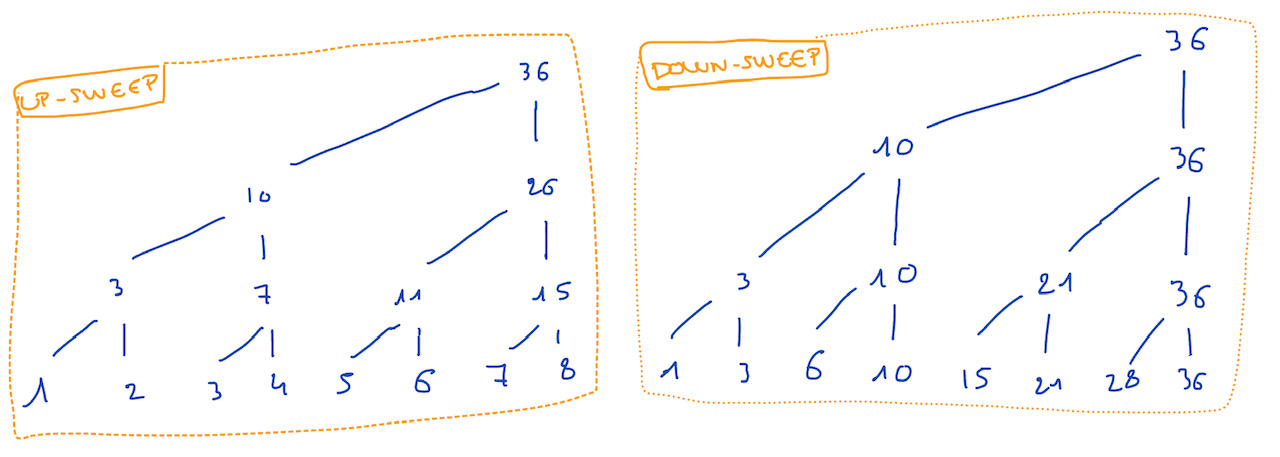 UP-SWEEP
36
10 26
3 7 11 15
1 2 3 4 5 6 7 8
DOWN-SWEEP
36
10 36
3 10 21 36
1 3 6 10 15 21 28 36